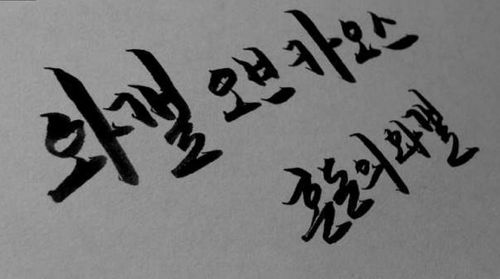 와켈 오브 카오스
혼돈의 와켈